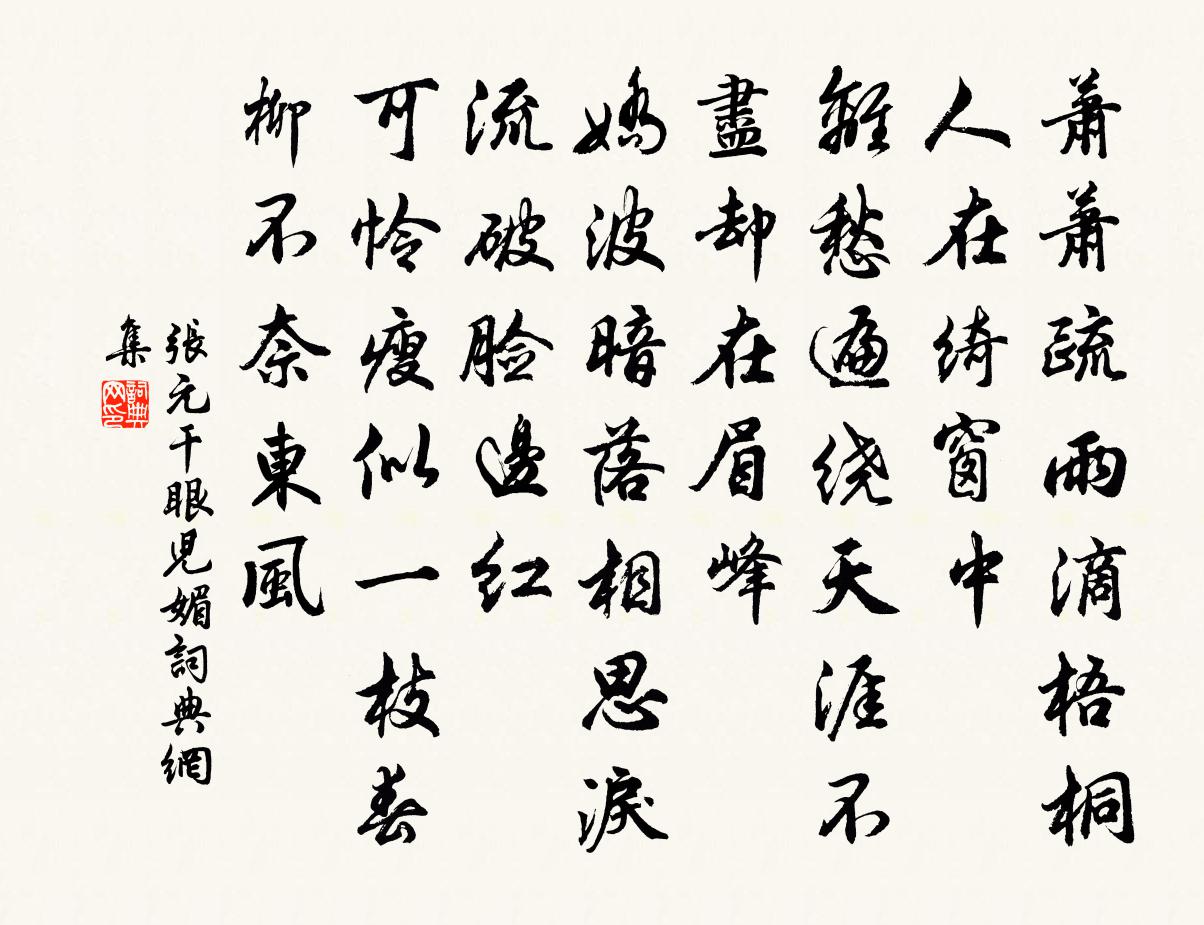 蕭蕭疏雨滴梧桐
人在綺窗中
離愁遍绕天涯不
盡却在眉峰
嬌波暗落相思淚
流破脸邊红
可怜瘦似一枝春
柳不奈東風
張元干眼児媚詞典網
集
詞典网印